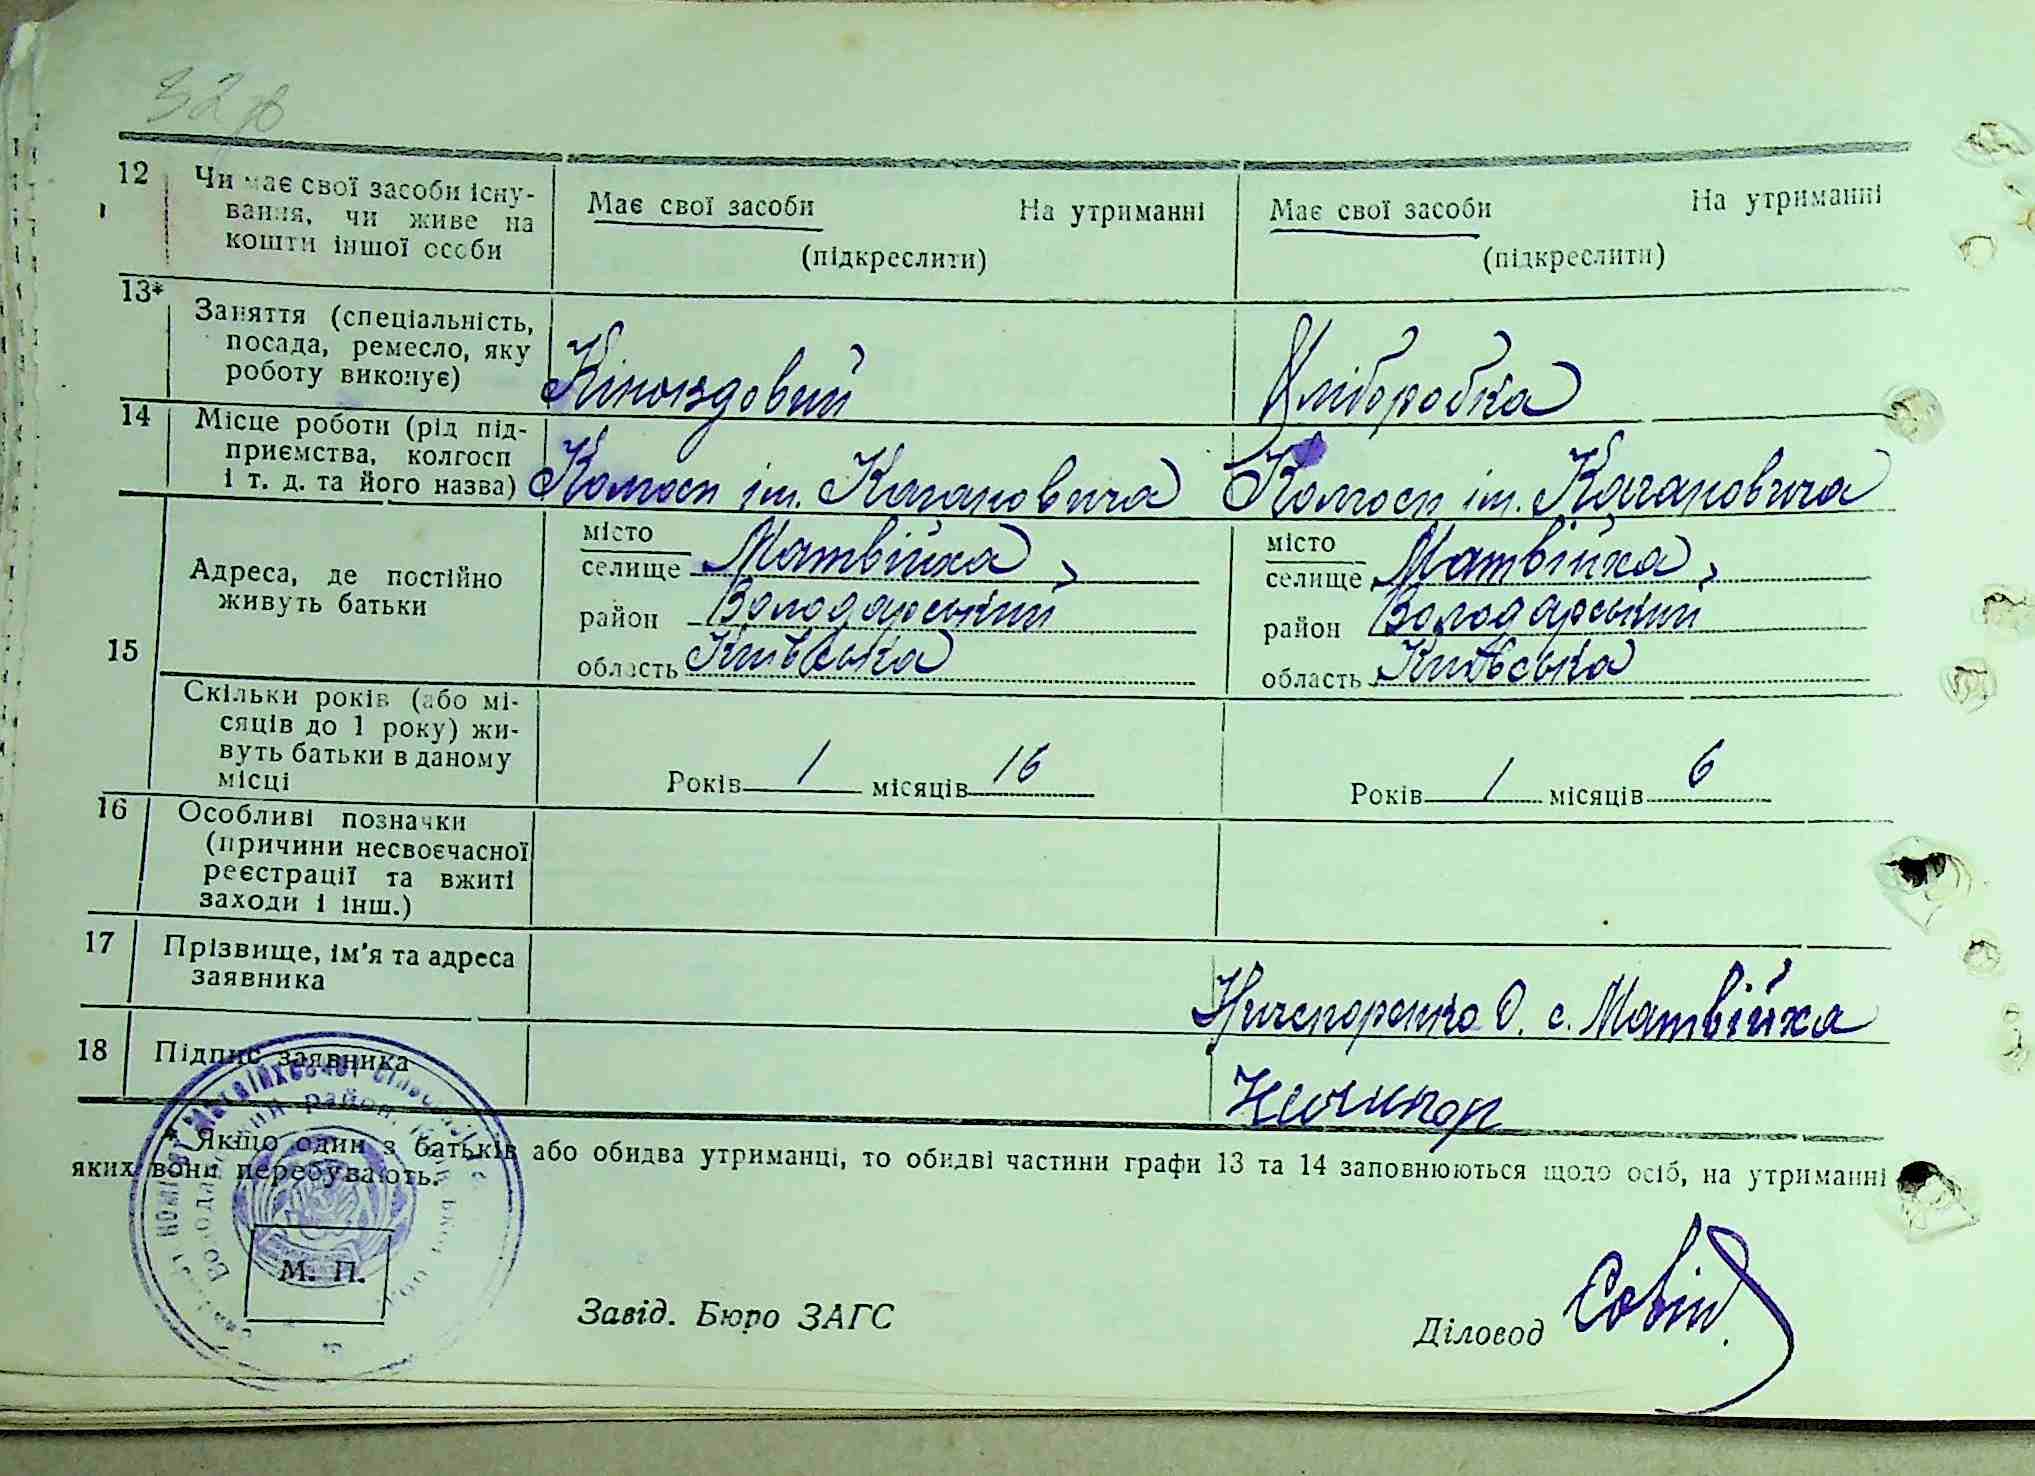 12 Чи має свої засоби існу-
вання, чи живе на
кошти іншої особи
Має свої засоби На утриманні
(підкреслити)
Має свої засоби На утриманні
(підкреслити)
13* Заняття (спеціальність,
посада, ремесло, яку
роботу виконує)
Їздовий
Хліборобка
14 Місце роботи (рід під-
приємства, колгосп
і т. д. та його назва)
Колгосп ім. Кагановича
Колгосп ім. Кагановича
15 Адреса, де постійно
живуть батьки
місто
селище Матвійха,
район Володарський
область Київська
місто
селище Матвійха,
район Володарський
область Київська
Скільки років (або мі-
сяців до 1 року) жи-
вуть батьки в даному
місці
Років 1 місяців 16
Років 1 місяців 6
16 Особливі позначки
(причини несвоєчасної
реєстрації та вжиті
заходи і інш.)
17 Прізвище, ім'я та адреса
заявника
Ничепоренко О. с. Матвійха
18 Підпис заявника
Ничипор
* Якщо один з батьків або обидва утриманці, то обидві частини графи 13 та 14 заповнюються щодо осіб, на утриманні
яких вони перебувають.
М. П.
Завід. Бюро ЗАГС
Діловод